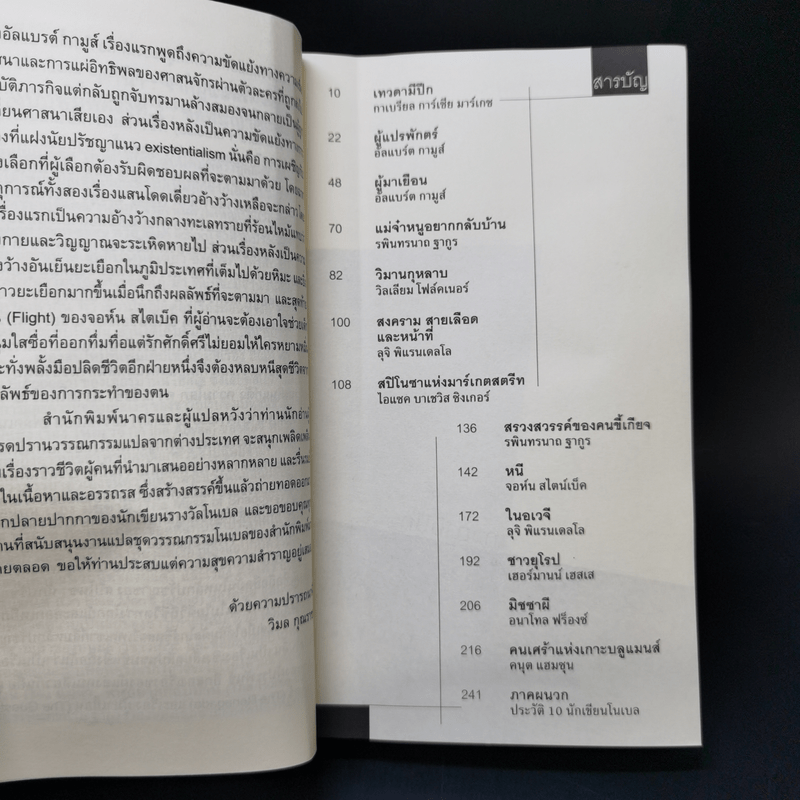 อัลแบรต์ กามูส์ เรื่องแรกพูดถึงความขัดแย้งทางความ
และการแผ่อิทธิพลของศาสนจักรผ่านตัวละครที่ถูก
บัติภารกิจแต่กลับถูกจับทรมานล้างสมองจนกลายเป็น
ยนศาสนาเสียเอง ส่วนเรื่องหลังเป็นความขัดแย้งทาง
งที่แฝงนัยปรัชญาแนว existentialism นั่นคือ การเผชิญ
งเลือกที่ผู้เลือกต้องรับผิดชอบผลที่จะตามมาด้วย โดย
ตุการณ์ทั้งสองเรื่องแสนโดดเดี่ยวอ้างว้างเหลือจะกล่าว
รื่องแรกเป็นความอ้างว้างกลางทะเลทรายที่ร้อนไหม้
งกายและวิญญาณจะระเหิดหายไป ส่วนเรื่องหลังเป็นความ
ว้างอันเย็นยะเยือกในภูมิประเทศที่เต็มไปด้วยหิมะ และ
าวยะเยือกมากขึ้นเมื่อนึกถึงผลลัพธ์ที่จะตามมา และสุดท้าย
(Flight) ของจอห์น สไตเบ็ค ที่ผู้อ่านจะต้องเอาใจช่วย
มใสซื่อที่ออกทึ่มทื่อแต่รักศักดิ์ศรีไม่ยอมให้ใครหยาม
ะทั่งพลั้งมือปลิดชีวิตอีกฝ่ายหนึ่งจึงต้องหลบหนีสุดชีวิต
ลัพธ์ของการกระทำของตน
สำนักพิมพ์นาครและผู้แปลหวังว่าท่านนักอ่าน
รดปรานวรรณกรรมแปลจากต่างประเทศ จะสนุกเพลิดเพลิน
เรื่องราวชีวิตผู้คนที่นำมาเสนออย่างหลากหลาย และ
ในเนื้อหาและอรรถรส ซึ่งสร้างสรรค์ขึ้นแล้วถ่ายทอดออก
กปลายปากกาของนักเขียนรางวัลโนเบล และขอขอบคุณ
านที่สนับสนุนงานแปลชุดวรรณกรรมโนเบลของสำนักพิมพ์
ยตลอด ขอให้ท่านประสบแต่ความสุขความสำราญอยู่เสมอ
ด้วยความปรารถนา
วิมล กุณราชา
สารบัญ
10 เทวดามีปีก
กาเบรียล การ์เซีย มาร์เกซ
22 ผู้แปรพักตร์
อัลแบร์ต กามูส์
48 ผู้มาเยือน
อัลแบร์ต กามูส์
70 แม่จำหนูอยากกลับบ้าน
รพินทรนาถ ฐากูร
82 วิมานกุหลาบ
วิลเลียม โฟล์คเนอร์
100 สงคราม สายเลือด
และหน้าที่
ลุจิ พิแรนเดลโล
108 สปิโนซาแห่งมาร์เกตสตรีท
ไอแซค บาเชวิส ซิงเกอร์
136 สรวงสวรรค์ของคนขี้เกียจ
รพินทรนาถ ฐากูร
142 หนี
จอห์น สไตน์เบ็ค
172 ในอเวจี
ลุจิ พิแรนเดลโล
192 ชาวยุโรป
เฮอร์มานน์ เฮสเส
206 มิซซาผี
อนาโทล ฟร็องซ์
216 คนเศร้าแห่งเกาะบลูแมนส์
คนุต แฮมซุน
241 ภาคผนวก
ประวัติ 10 นักเขียนโนเบล